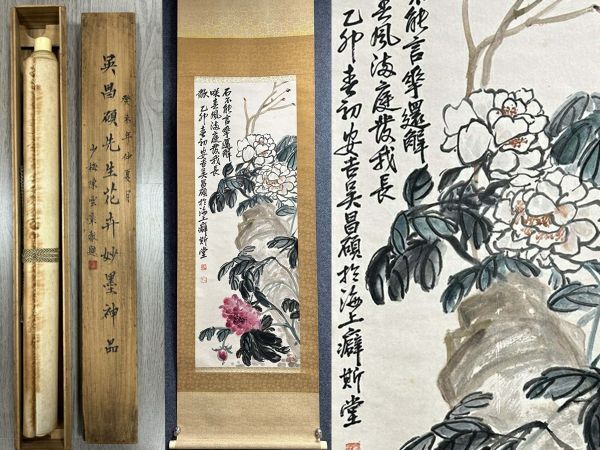 癸未年仲夏月
吳昌碩先生花卉妙墨神品
少梅陳雲彰敬題
石不能言華還解
咲春風滿庭發我長
歗乙卯春初安吉吳昌碩於海上癖斯堂
不能言華還解
春風滿庭發我長
乙卯春初安吉吳昌碩於海上癖斯堂